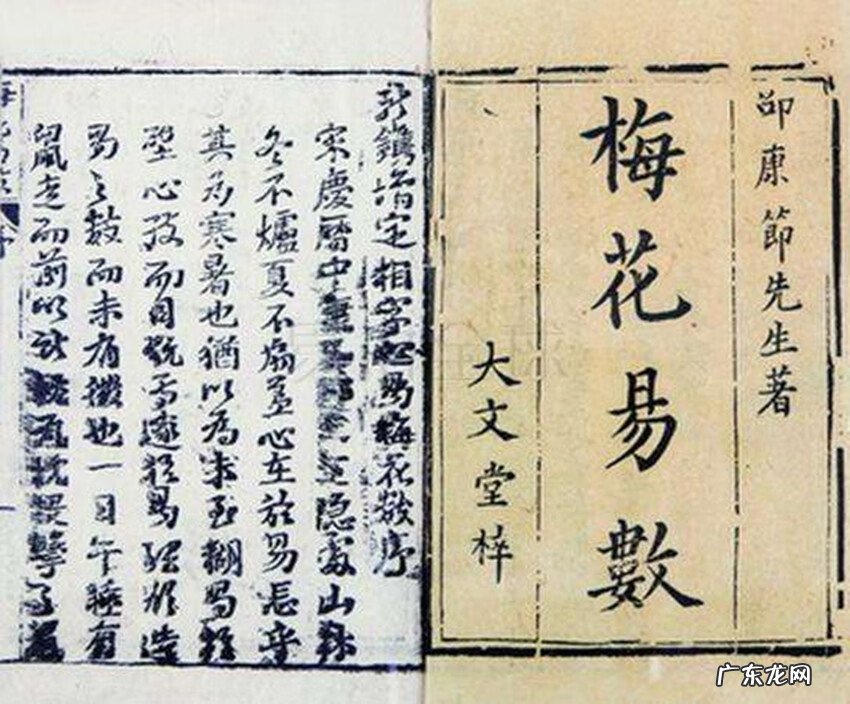 邵康節先生著
梅花易數
大文堂梓
定相字心易梅花數序
宋慶曆中隱處山林
冬不爐夏不扇蓋心在於易忘乎
其為寒暑也猶以為未至糊易於
壁心致而目玩焉邃於易理欲造
易之數而未有徵也一日午睡有
鼠走而前以枕擊
广东龙网